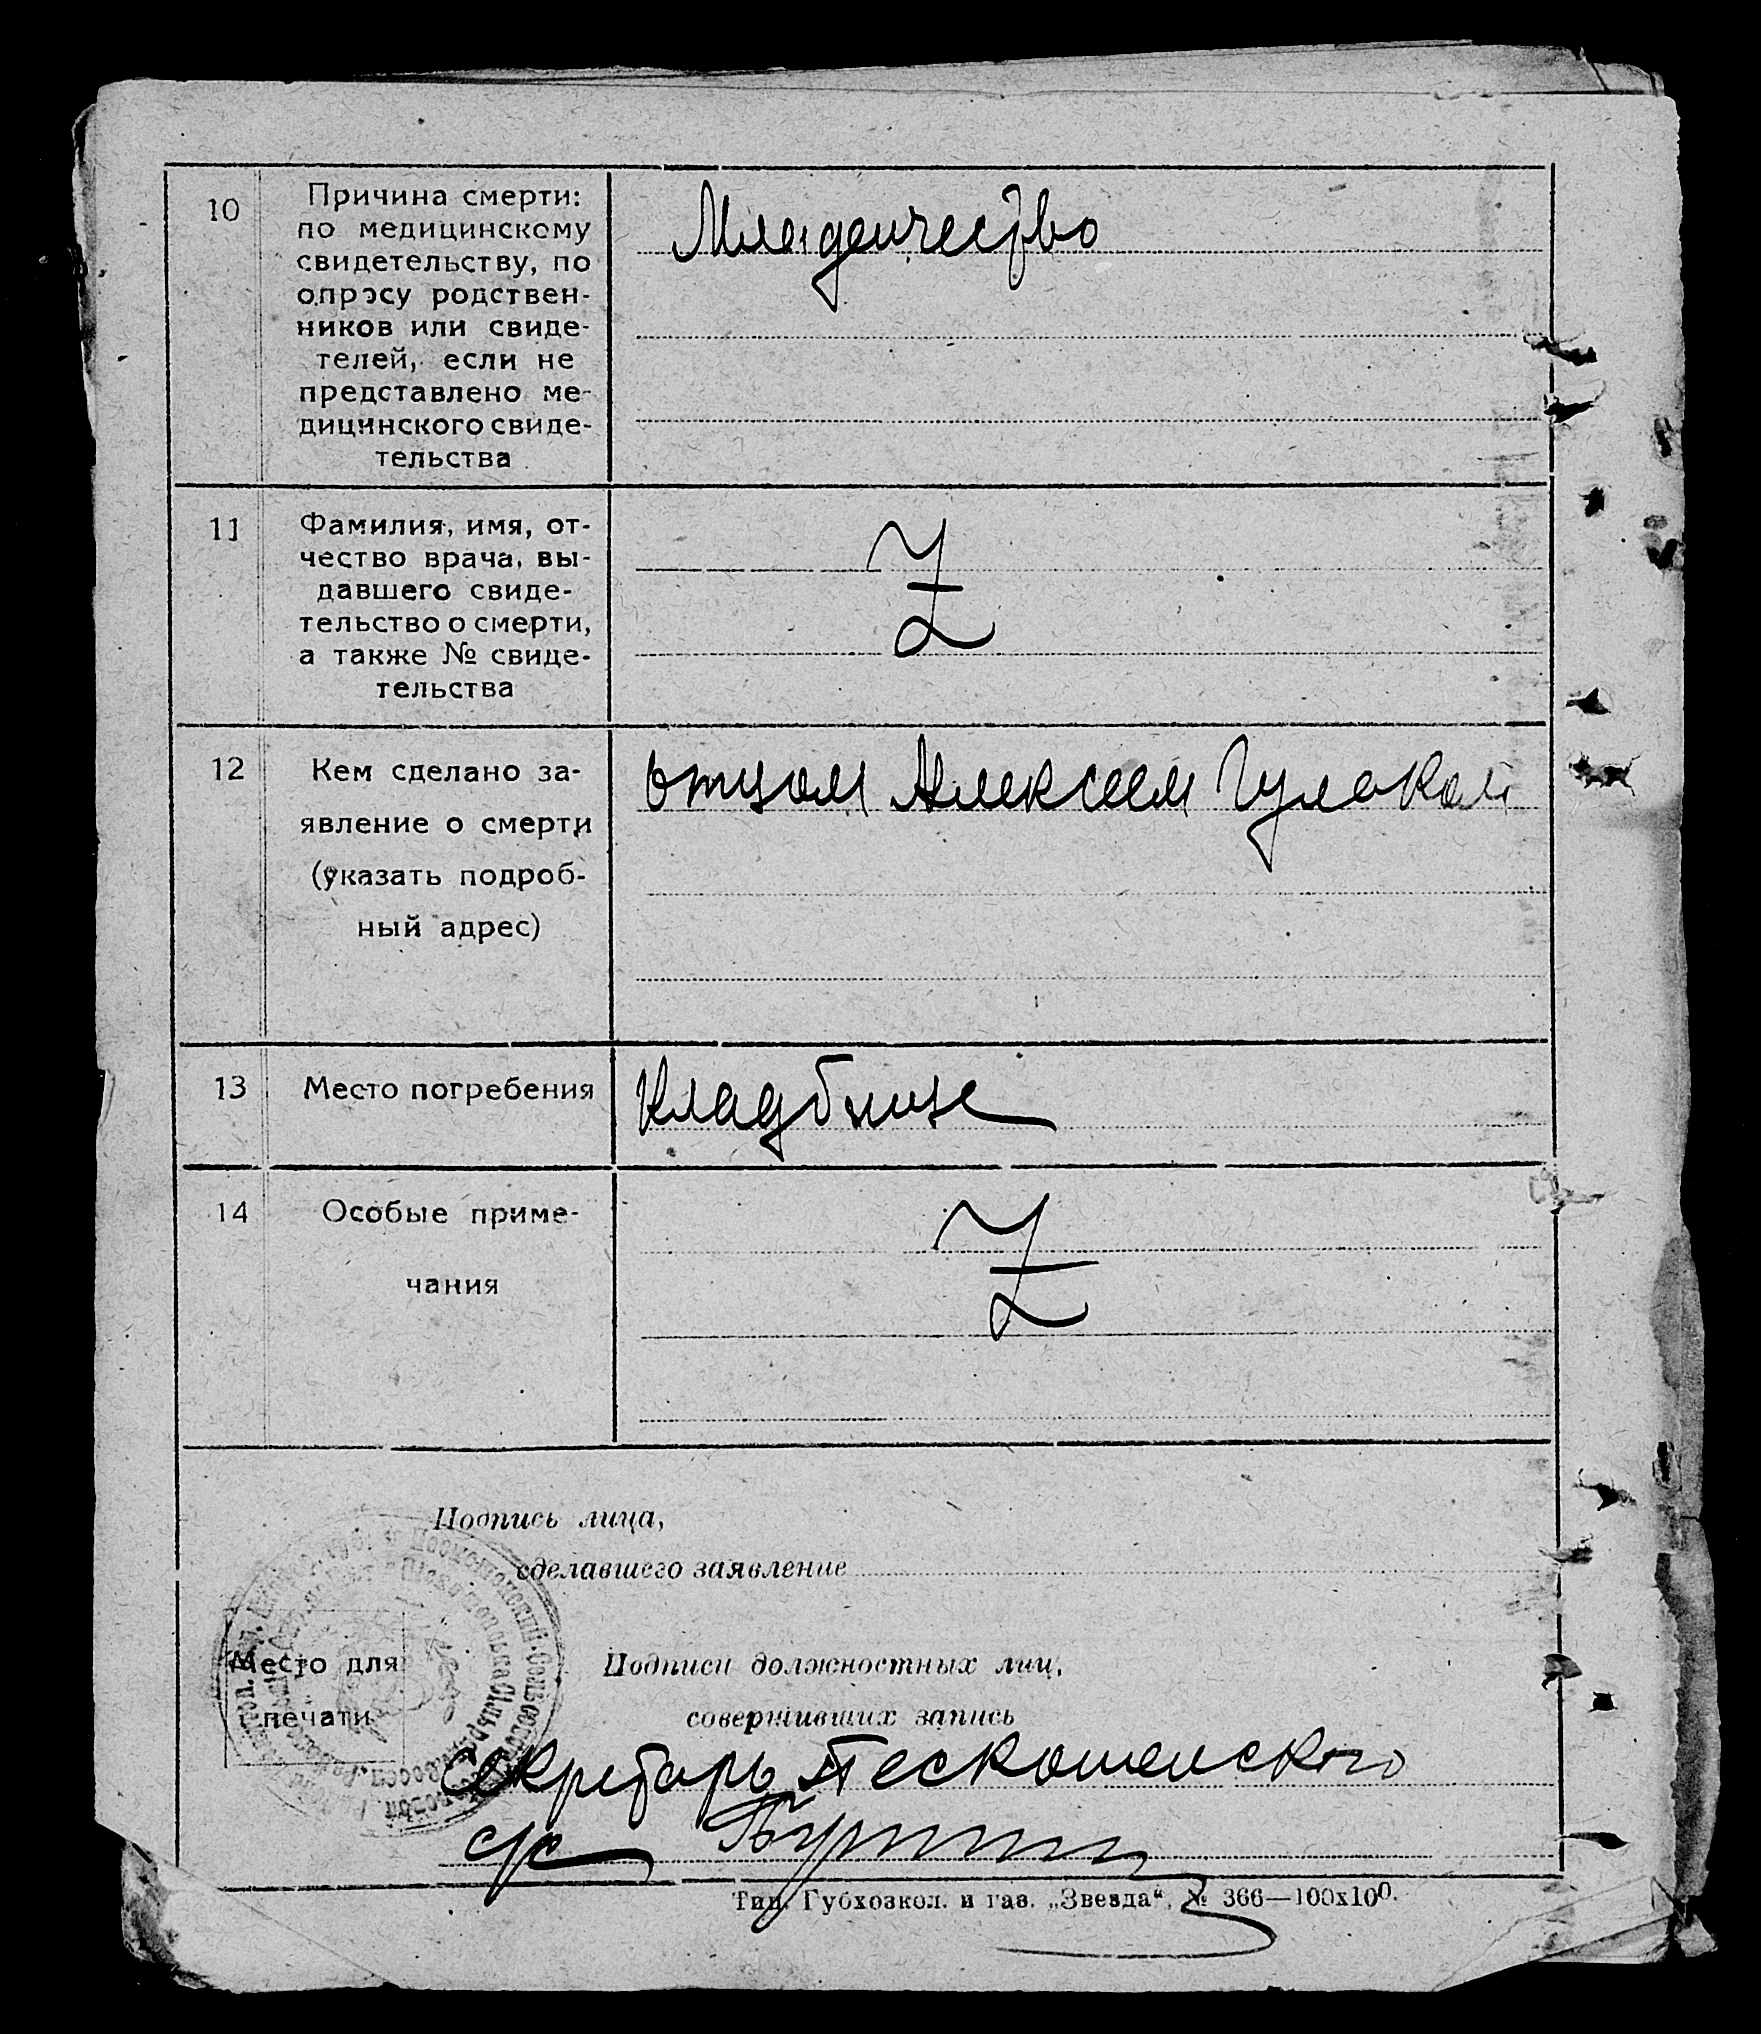 10
Причина смерти:
по медицинскому
свидетельству, по
опросу родствен-
ников или свиде-
телей, если не
представлено ме-
дицинского свиде-
тельства
Младенчество
11
Фамилия, имя, от-
чество врача, вы-
давшего свиде-
тельство о смерти,
а также № свиде-
тельства
Z
12
Кем сделано за-
явление о смерти
(указать подроб-
ный адрес)
отцом Алексеем Гулаком
13
Место погребения
Кладбище
14
Особые приме-
чания
Z
Подпись лица,
сделавшего заявление
Место для
печати
Подписи должностных лиц,
совершивших запись
Секретарь
с/с
Тип. Губхозкол. и газ. „Звезда“, № 366—100х100.